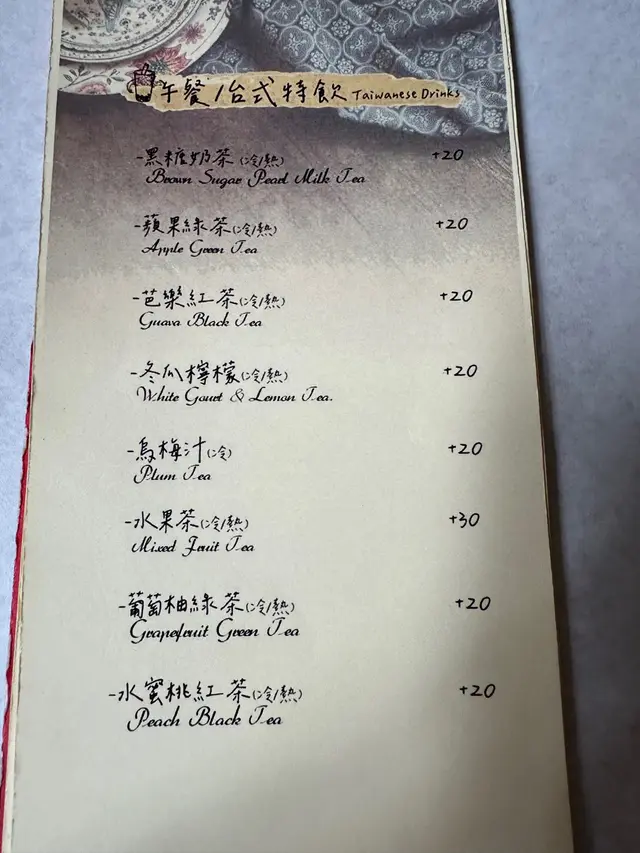 午餐/台式特飲 Taiwanese Drinks
-黑糖奶茶(冷/熱) +20
Brown Sugar Pearl Milk Tea
-蘋果綠茶(冷/熱) +20
Apple Green Tea
-芭樂紅茶(冷/熱) +20
Guava Black Tea
-冬瓜檸檬(冷/熱) +20
White Gourt & Lemon Tea.
-烏梅汁(冷) +20
Plum Tea
-水果茶(冷/熱) +30
Mixed Fruit Tea
-葡萄柚綠茶(冷/熱) +20
Grapefruit Green Tea
-水蜜桃紅茶(冷/熱) +20
Peach Black Tea